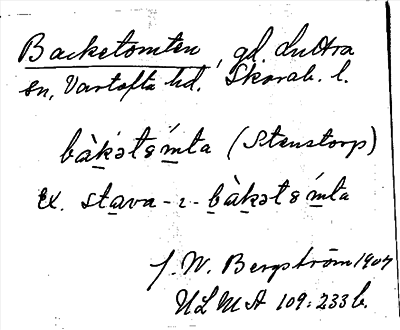 Backetomten, gd. Luttra
sn, Vartofta hd. Skarab. l.
bàkəts m̲ta (Stenstorp)
Ex. stava-ı-bàkəts m̲ta
J. W. Bergström 1907
ULMA 109:233 b.